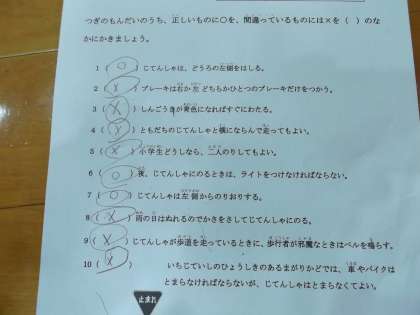 つぎのもんだいのうち、正しいものに○を、間違っているものには×を（ ）のな
かにかきましょう。
1（ ○ ）じてんしゃは、どうろの左側をはしる。
2（ × ）ブレーキは右か左どちらかひとつのブレーキだけをつかう。
3（ × ）しんごうきが黄色になればすぐにわたる。
4（ × ）ともだちのじてんしゃと横にならんで走ってもよい。
5（ × ）小学生どうしなら、二人のりしてもよい。
6（ ○ ）夜、じてんしゃにのるときは、ライトをつけなければならない。
7（ ○ ）じてんしゃは左側からのりおりする。
8（ × ）雨の日はぬれるのでかさをさしてじてんしゃにのる。
9（ × ）じてんしゃが歩道を走っているときに、歩行者が邪魔なときはベルを鳴らす。
10（ × ）いちじていしのひょうしきのあるまがりかどでは、車やバイクは
とまらなければならないが、じてんしゃはとまらなくてよい。
止まれ